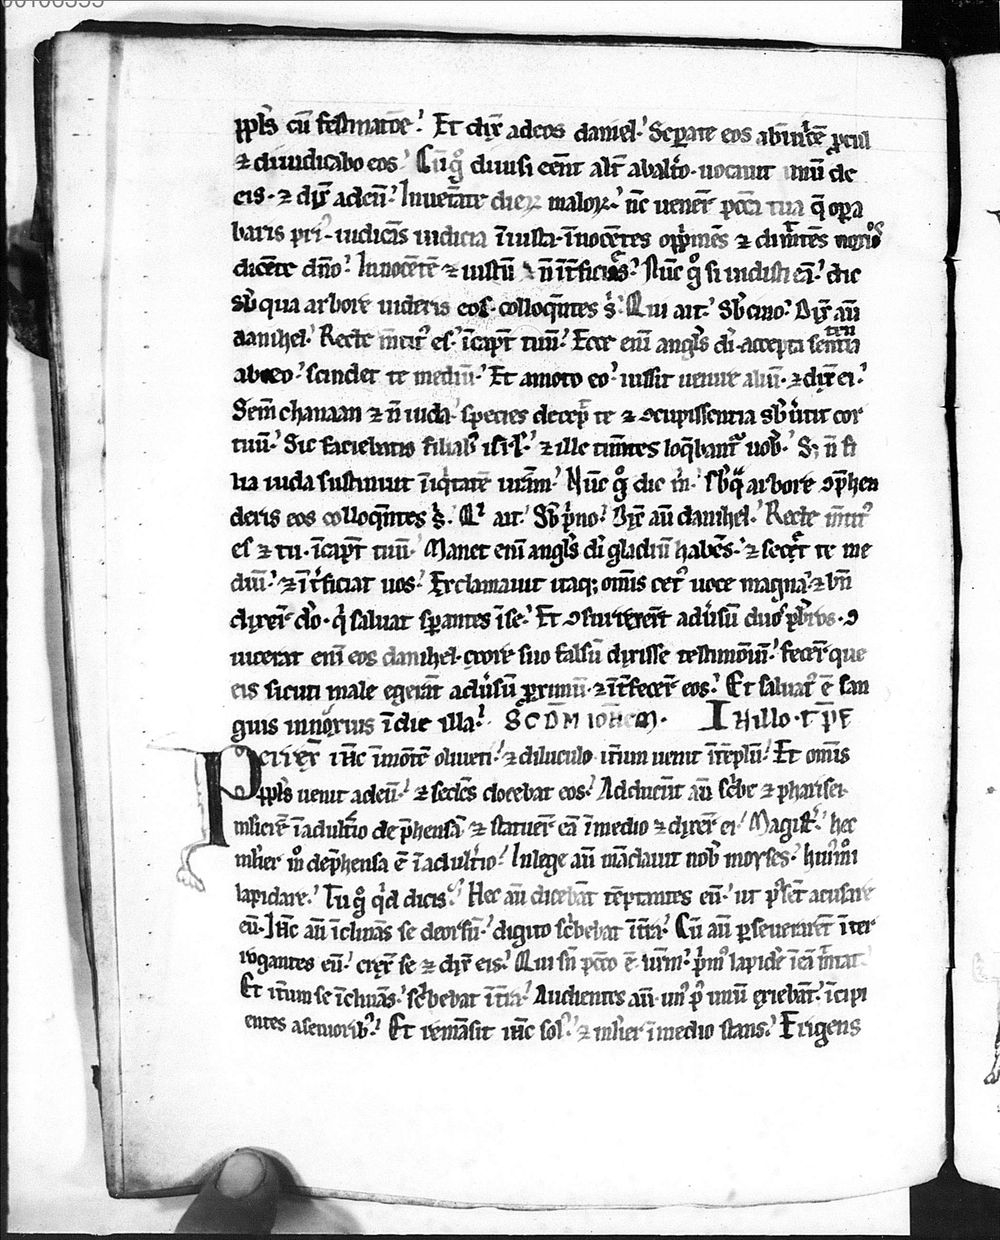 ppl̅s cu̅ festinatoe̅. Et dix̅ ad eos daniel. Sep̲arate eos abinuice̅ p̲cul
⁊ diiudicabo eos. Cu̅ g̊ diuisi ee̅nt alt̅ abalt̅o. uocauit unu̅ de
eis. ⁊ dix̅ ad eu̅. Inueta̅te dieꝝ maloꝝ. nc̅ uener̅ pcc̅a tua q̅ op̲a
baris pri̅. iudica̅s iudicia i̅iusta. i̅noce̅tes opp̅me̅s ⁊ dimi̅te̅s noxios
dice̅te dn̅o. Innoce̅te̅ ⁊ iustu̅ n̅ i̅t̅ficies. Nu̅c g̊ si uidisti ea̅. dic
sb̅ qua arbore uideris eos. colloq̅ntes s̅. Qui ait. Sb̅ cino. Dix̅ au̅
danihel. Recte m̅tit᷒ es. i̅cap̅t tuu̅. Ecce eni̅ angl̅s di̅. accepta sententia
ab eo. scindet te mediu̅. Et amoto eo. iussit uenire aliu̅. ⁊ dix̅ ei.
Sem̅ chanaan ⁊ n̅ iuda. species decep̅ te ⁊ ꝯcupiscentia sb̅u̅tit cor
tuu̅. Sic faciebatis filiab᷒ isr̅l. ⁊ ille tim̅tes loq̅bant᷒ uob̅. S; n̅ fi
lia iuda sustinuit i̅iq̅tate̅ ura̅m. Nu̅c g̊ dic m̅. sb̅ q̅ arbore ꝯp̅hen
deris eos colloq̅ntes s̅. Qi ait. Sb̅ p̅no. Dix̅ au̅ danihel. Recte m̅tit᷒
es ⁊ tu. i̅cap̅t tuu̅. Manet eni̅ angl̅s di̅ gladiu̅ habe̅s. ⁊ secet te me
diu̅. ⁊ i̅t̅ficiat uos. Exclamauit itaq; omi̅s cet᷒ uoce magna. ⁊ bn̅
dixer̅ do̅. q̅ saluat sp̲antes i̅ se. Et ꝯsurrexer̅t adu̅su̅ duos pb̅ros. ꝯ
uicerat eni̅ eos danihel. ex ore suo falsu̅ dixisse testimoniu̅. fecer̅ que
eis sicuti male egera̅t adu̅su̅ p̲ximu̅. ⁊ i̅t̅fecer̅ eos. Et saluat᷒ e̅ san
guis innoxius i̅ die illa. SCD̅M IOH̅EM. IN illo. t̅p̅r
Perrex̅ ih̅c i̅mo̅te̅ oliueti. ⁊ diluculo it̅um uenit i̅te̅plu̅. Et omi̅s
ppl̅s uenit ad eu̅. ⁊ sede̅s docebat eos. Adducu̅t au̅ sc̅be ⁊ pharisei
mulier̅e̅ i̅adult̅io dep̅hensa̅ ⁊ statuer̅ ea̅ i̅ medio ⁊ dixer̅ ei. Magist̅. hec
ml̅ier m̊ dep̅hensa e̅ i̅adult̅io. In lege au̅ ma̅dauit nob̅ moyses. hui᷒mo̅i
lapidare. Tu g̊ q̅d dicis. Hec au̅ diceba̅t te̅ptantes eu̅. ut p᷒se̅t acusare
eu̅. Ih̅c au̅ i̅clina̅s se deorsu̅. digito sc̅bebat i̅t̅ra. Cu̅ au̅ p̲seuerare̅t i̅ter
rogantes eu̅. erex̅ se ⁊ dix̅ eis. Qui sn̅ pcc̅o e̅. ur̅m. p̅m᷒ lapide̅ i̅ ea̅ mi̅tat.
Et it̅um se i̅clina̅s. sc̅bebat i̅t̅ra. Audientes au̅. un᷒ p᷒ unu̅ exieba̅t. i̅cipi
entes a seniorib᷒. Et rema̅sit ih̅c sol᷒. ⁊ ml̅ier i̅ medio stans. Erigens